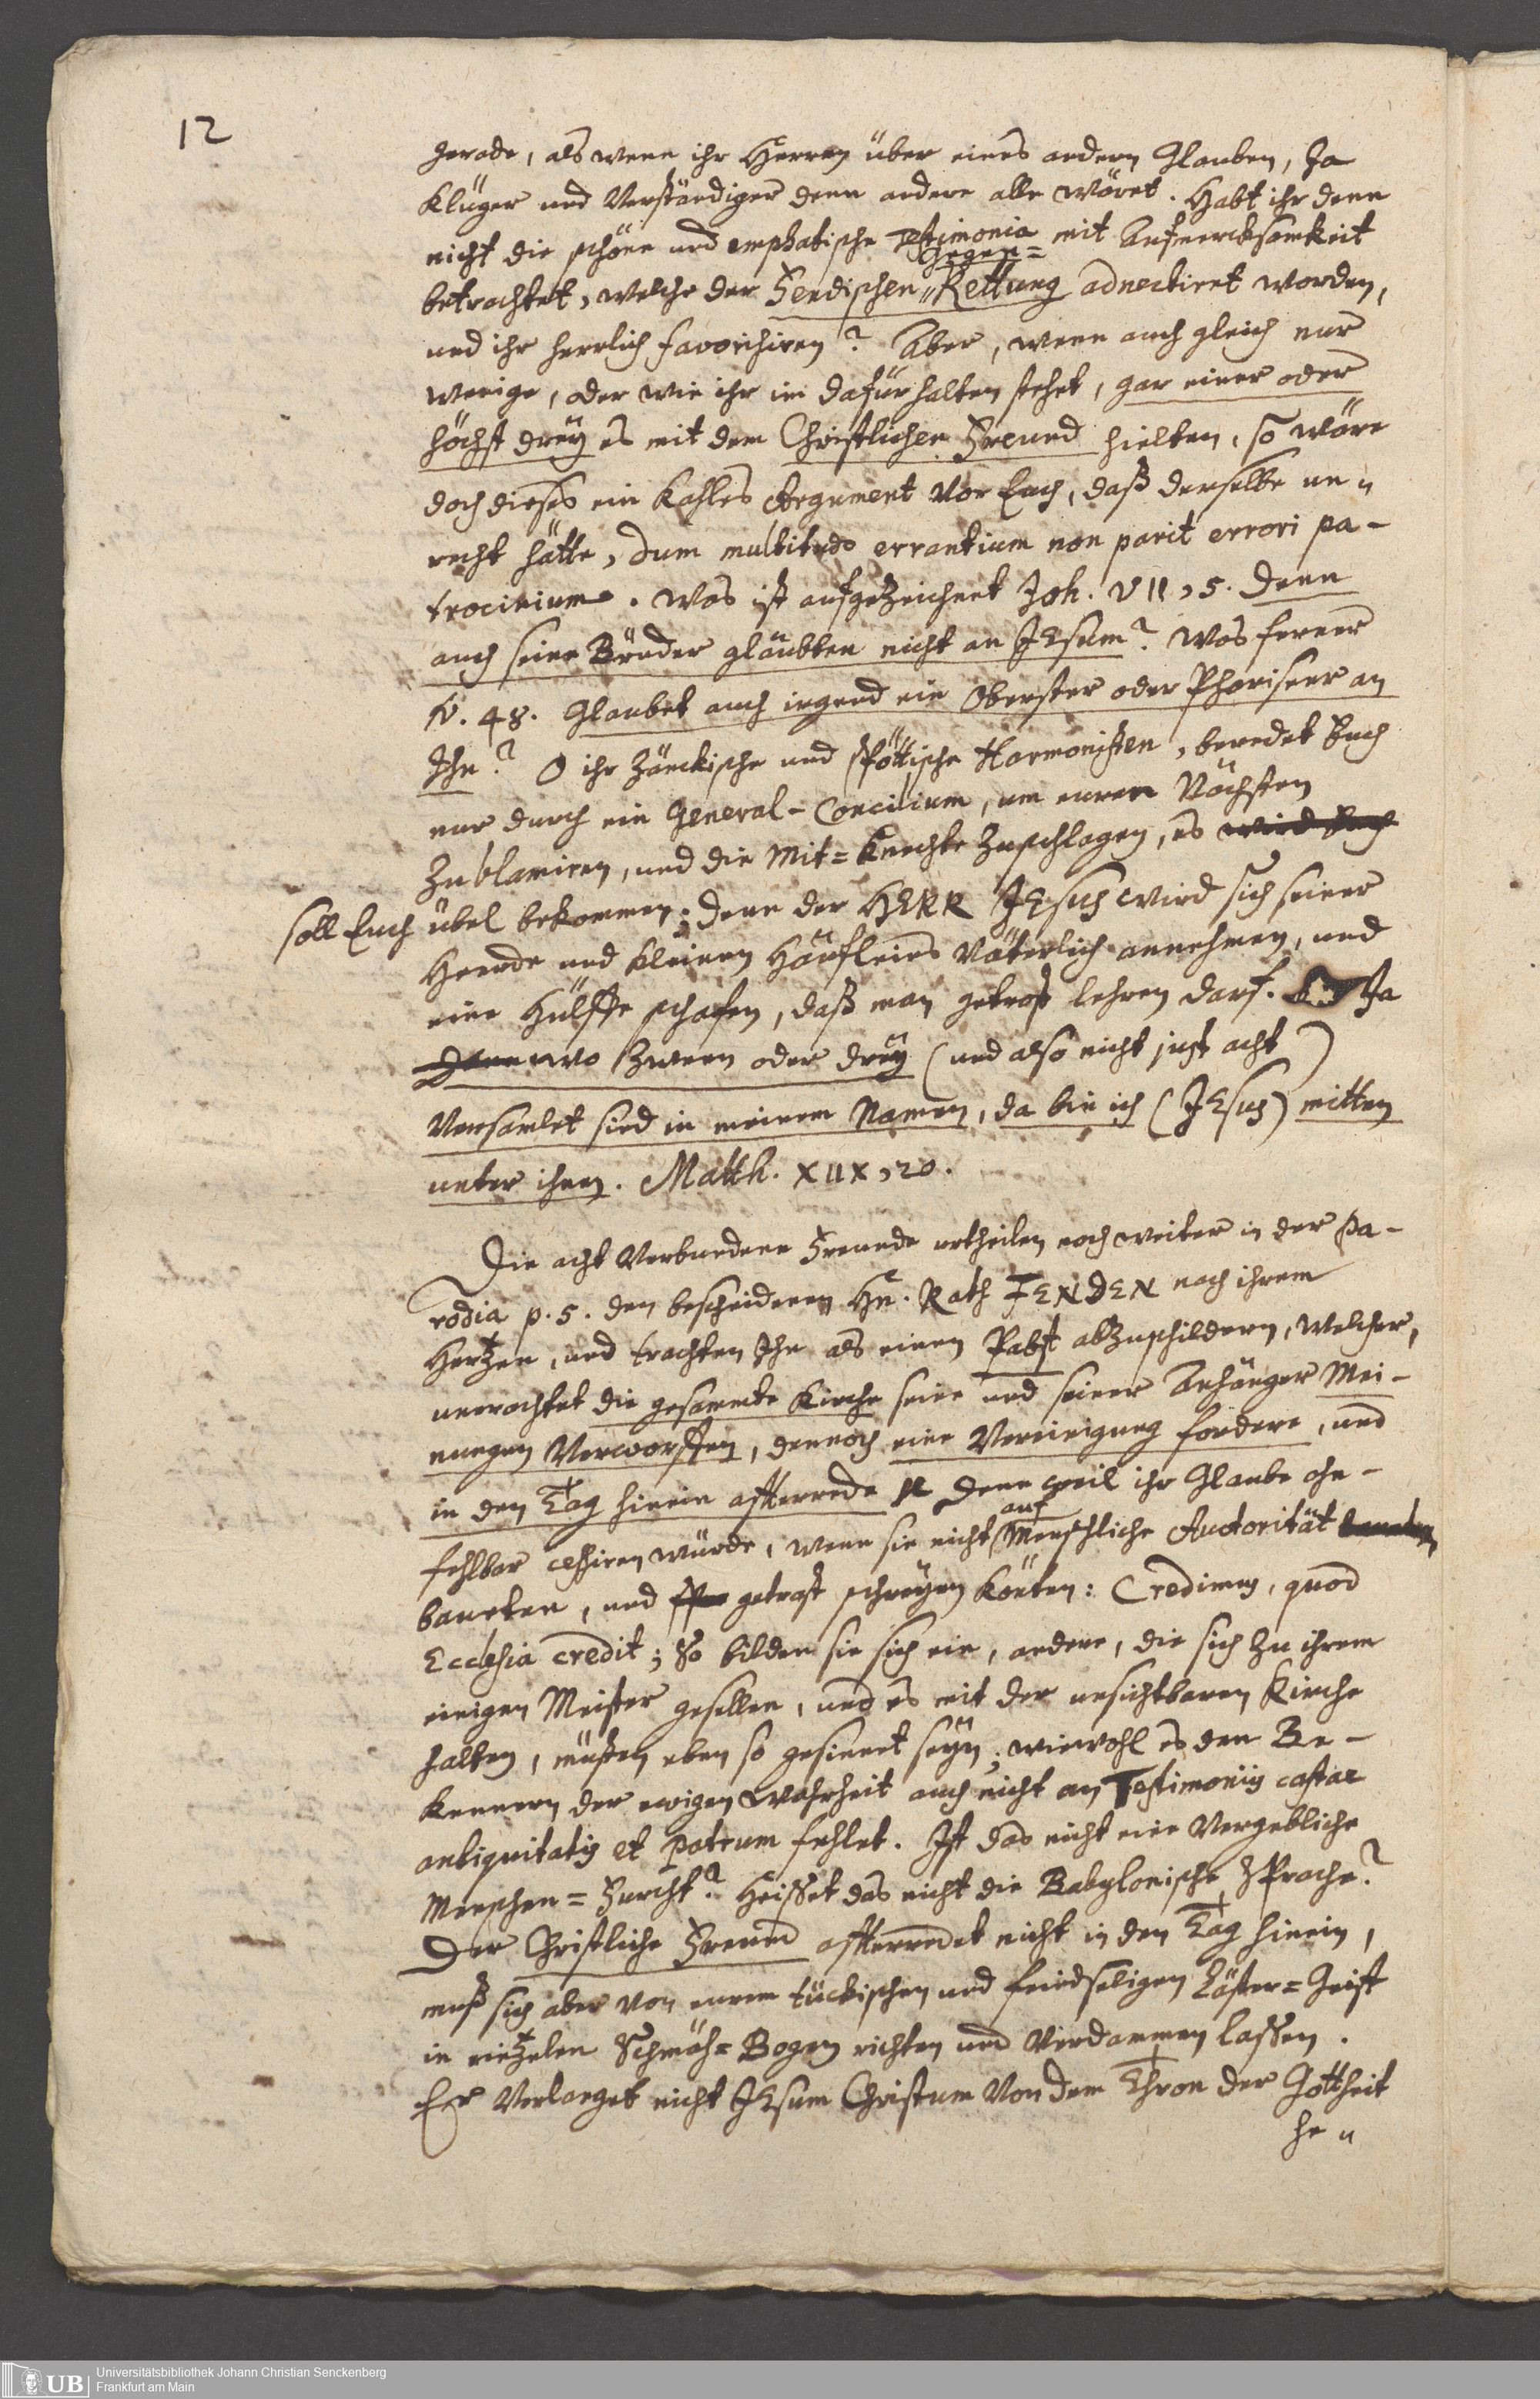 12
gerade, als wenn ihr Herren über eines andern Glauben, Ja
klüger und Verständiger denn andere alle wäret. Habt ihr denn
nicht die schöne und emphatische Testimonia mit Aufmercksamkeit
Gegen=
betrachtet, welche der Fendischen Rettung adnectiret worden,
und ihr herrlich favorisiren? Aber, wenn auch gleich nur
wenige, oder wie ihr im dafürhalten stehet, gar einer oder
höchst dreÿ es mit dem Christlichen Freund hielten, so wäre
doch dieses ein kahles Argument vor Euch, daß derselbe un„
recht hätte, dum multitudo errantium non parit errori pa-
trocinium. Was ist aufgezeichnet Joh. VII, 5. Denn
auch seine Brüder gläubten nicht an JEsum? Was ferner
V. 48. Glaubet auch irgend ein Oberster oder Phariseer an
Ihn? O ihr Zänckische und spöttische Harmonisten, beredet Euch
nur durch ein General-Concilium, um euren Nächsten
zu blamiren, und die Mit=Knechte zuschlagen, es wird Euch
soll Euch übel bekommen; denn der HERR JEsus wird sich seiner
Heerde und kleinen Häufleins Väterlich annehmen, und
eine Hülffe schafen, daß man getrost lehren darf. Ja
Denn wo zween oder dreÿ (und also nicht just acht)
Versamlet sind in meinem Namen, da bin ich (JEsus) mitten
unter ihnen. Matth. XIIX, 20.
Die acht Verbundene Freunde urtheilen noch weiter in der Pa-
rodia p. 5. den bescheidenen Hn. Rath FENDEN nach ihrem
Hertzen, und trachten Ihn als einen Pabst abzuschildern, welcher,
unerachtet die gesammte Kirche seine und seiner Anhänger Mei-
nungen Verworffen, dennoch eine Vereinigung fordere, und
in den Tag hinein affterrede. Denn weil ihr Glaube ohn-
auf
fehlbar cessiren würde, wenn sie nicht Menschliche Auctorität baueten
baueten, und getrost schreÿen könten: Credimus, quod
Ecclesia credit; So bilden sie sich ein, andere, die sich zu ihrem
einigen Meister gesellen, und es mit der unsichtbaren Kirche
halten, müsten eben so gesinnet seÿn; wiewohl es den Be-
kennern der ewigen Wahrheit auch nicht an Testimoniis castae
antiquitatis et Patrum fehlet. Ist das nicht eine Vergebliche
Menschen=Furcht? Heisset das nicht die Babylonische Sprache?
Der Christliche Freund affterredet nicht in den Tag hinein,
muß sich aber von eurem tückischen und feindseligen Läster=Geist
in eintzelen Schmäh=Bogen richten und Verdammen lassen.
Er Verlanget nicht JEsum Christum von dem Thron der Gottheit
he„
UB
Universitätsbibliothek Johann Christian Senckenberg
Frankfurt am Main